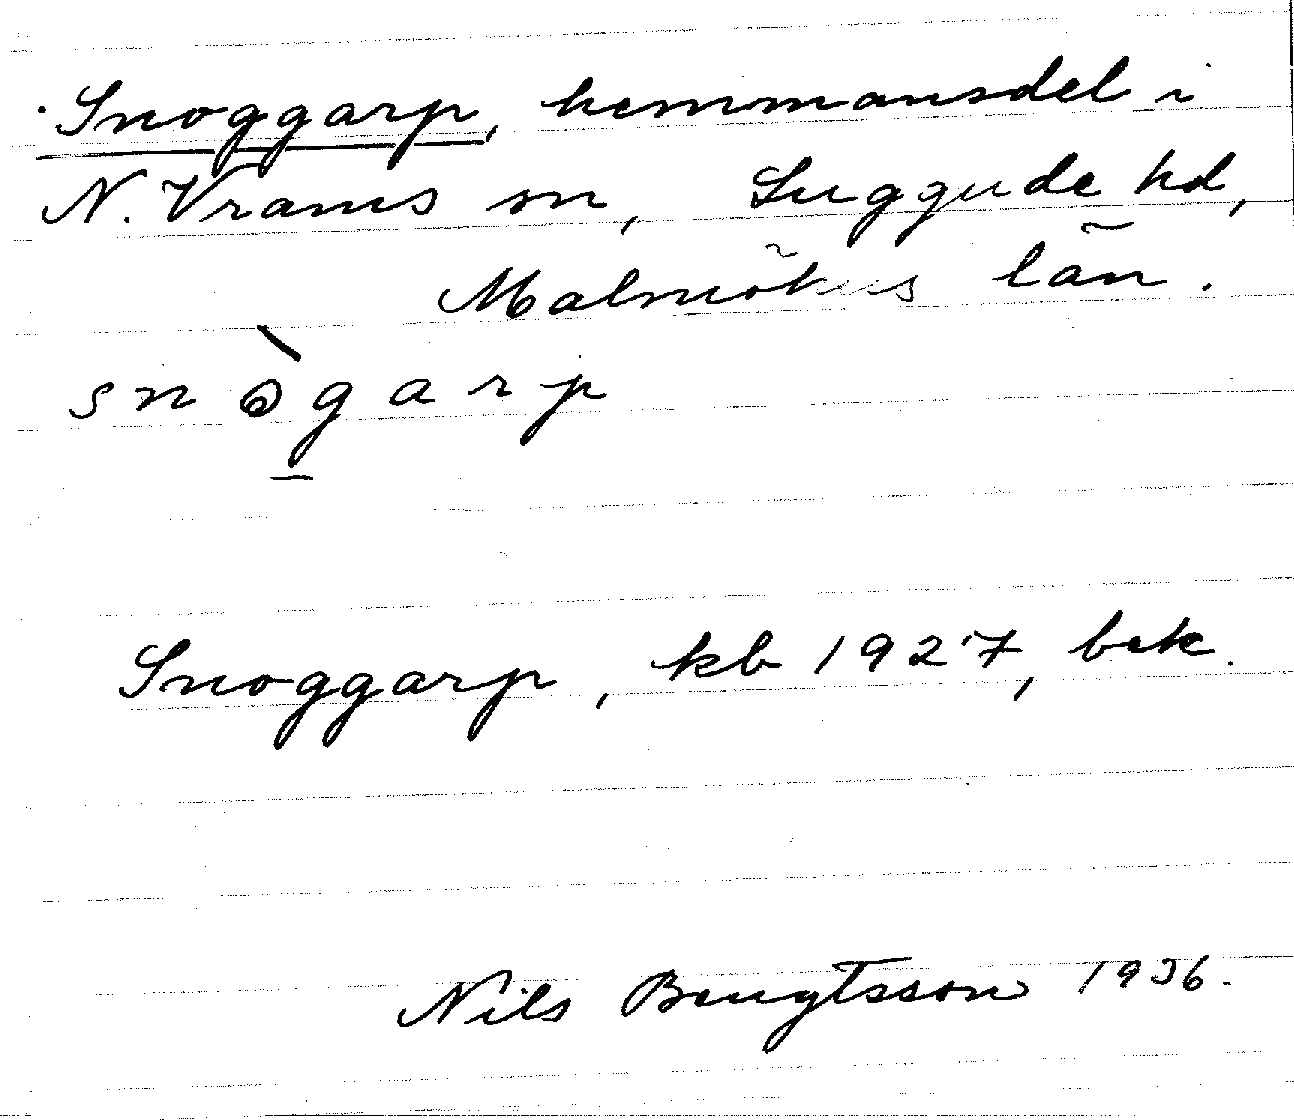 Snoggarp, hemmansdel i
N. Vrams sn, Luggude hd,
Malmöhus län.
snògarp
Snoggarp, kb 1927, bek.
Nils Bengtsson 1936.